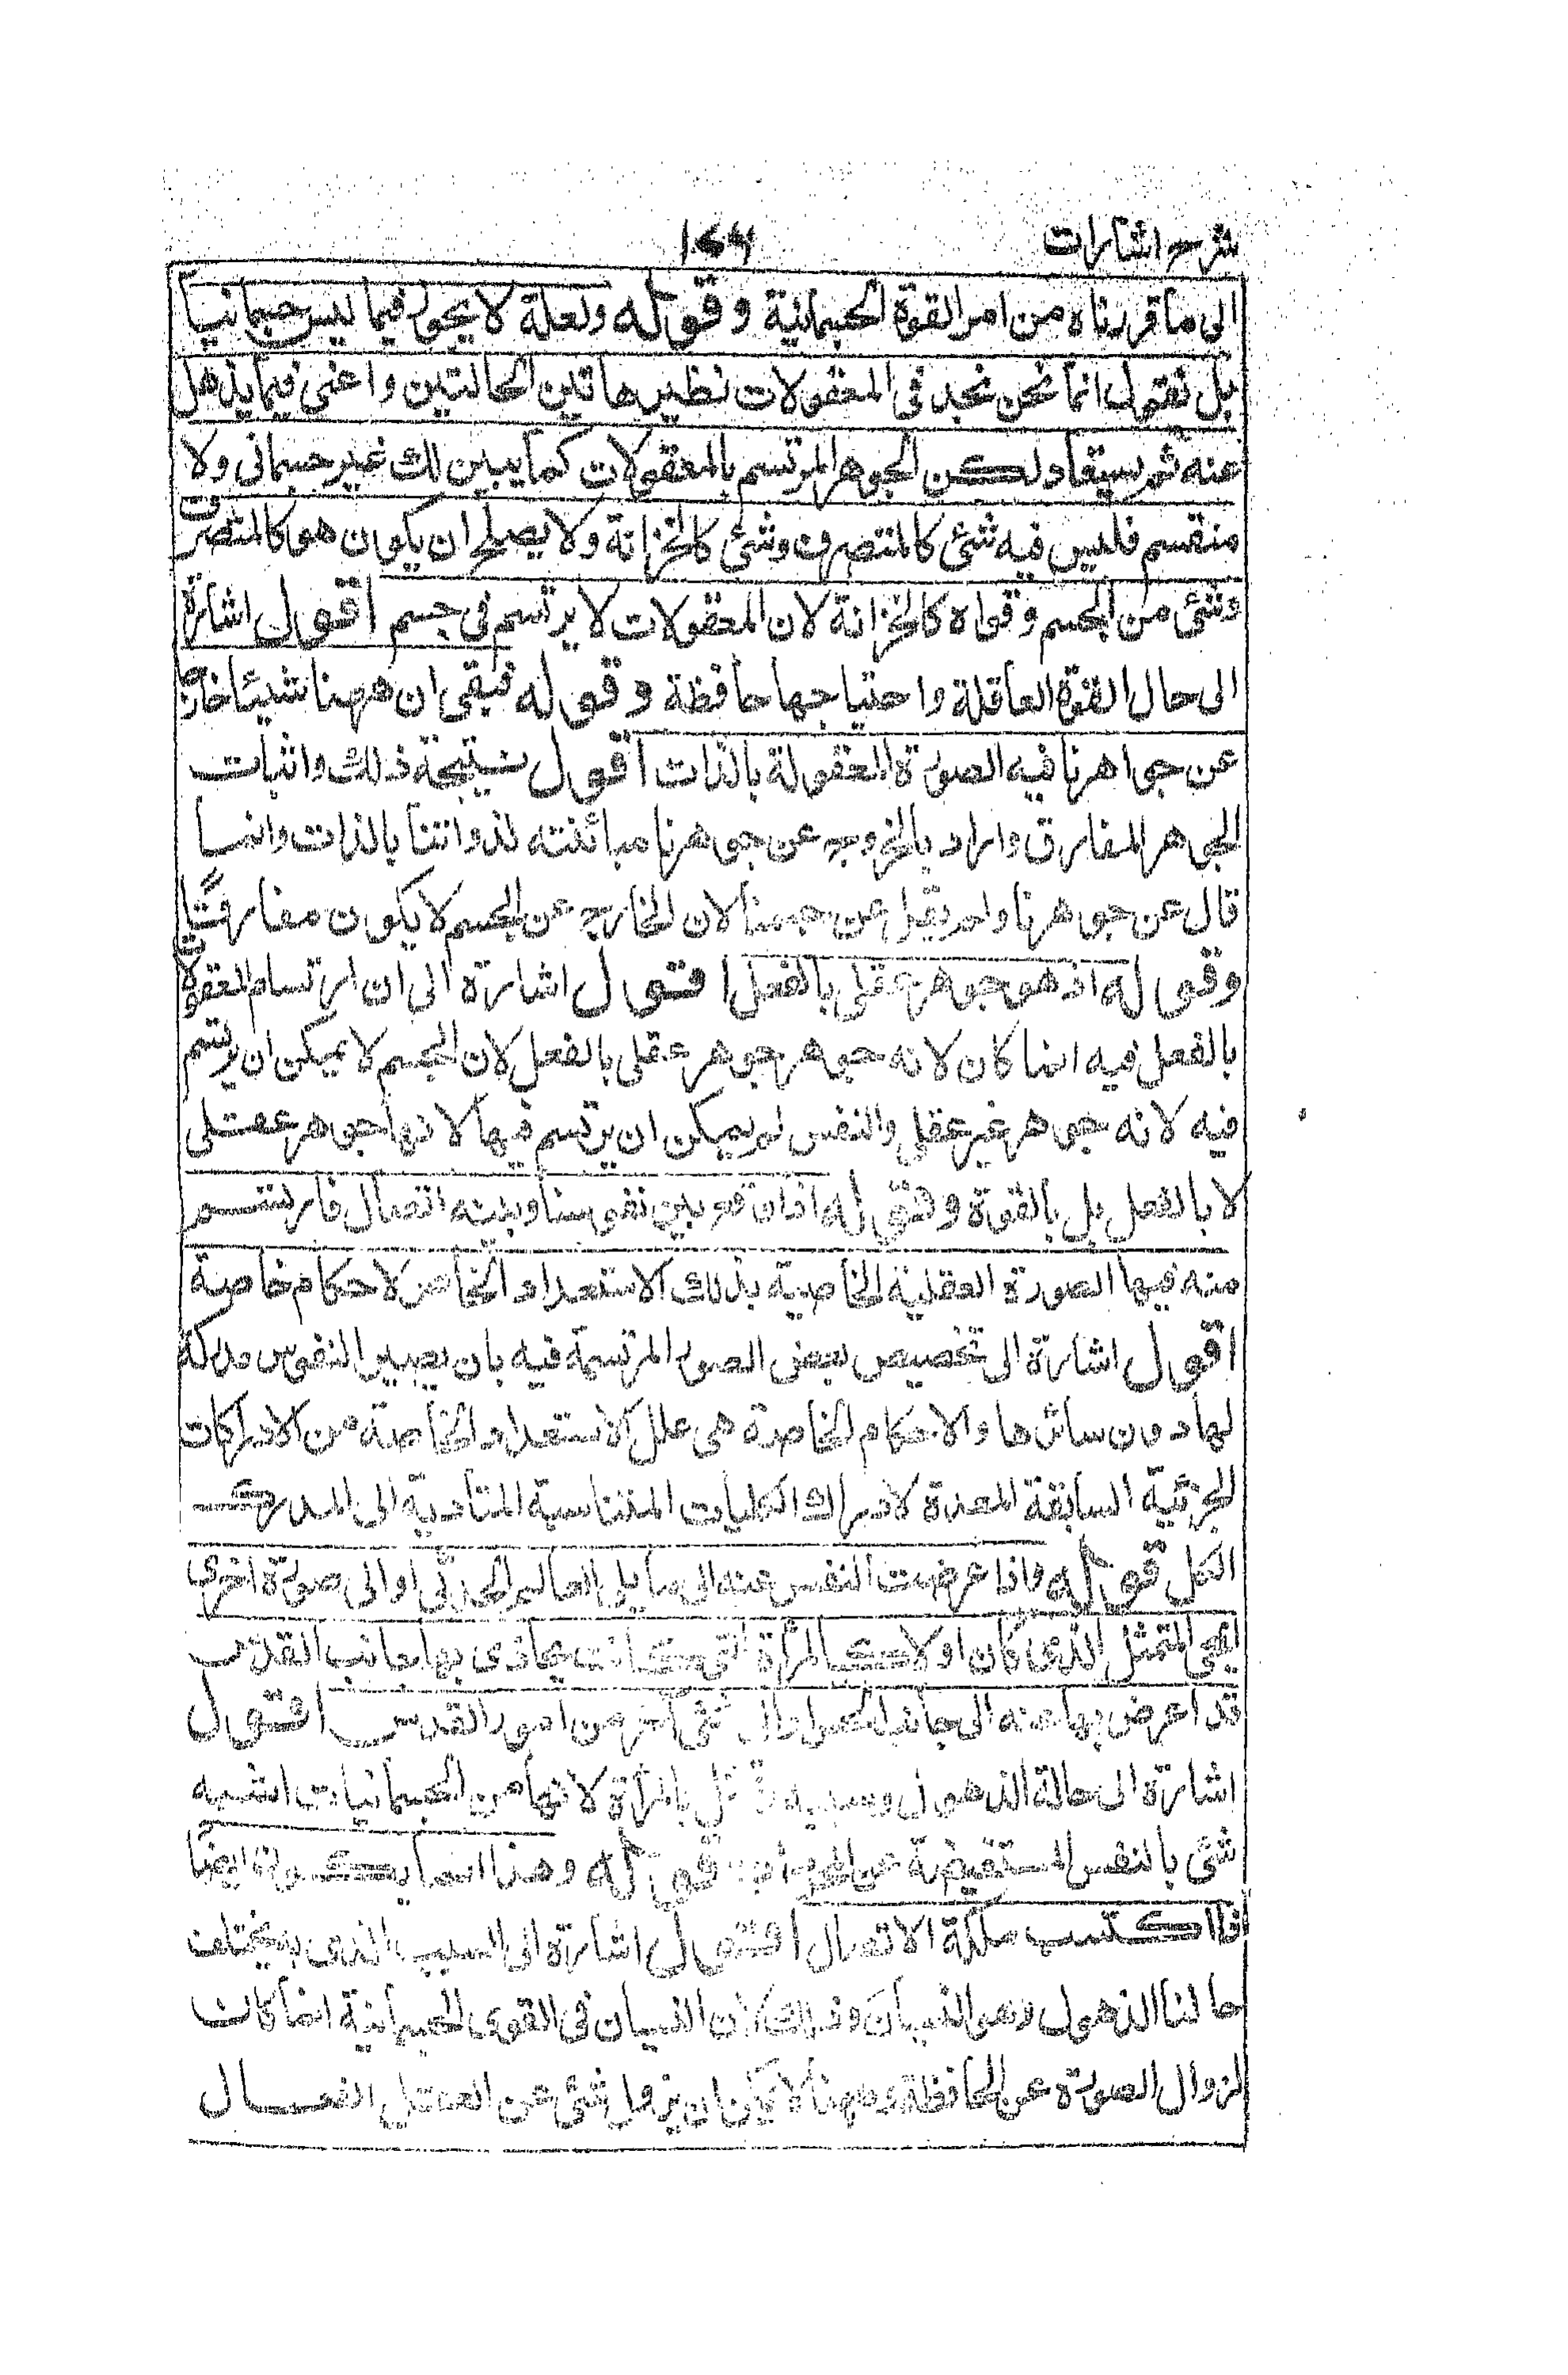 شرح اشارات
الى ما قررناه من امر القوة الجسمانية وقوله ولعله لا يجوز فيما ليس جسمانيا
بل نقول انما نحن نجد فى المعقولات نظير هاتين الحالتين واعنى فيما يذهل
عنه ثم يستعاد لكن الجوهر المرتسم بالمعقولات كما يبين لك غير جسمانى ولا
منقسم فليس فيه شئ كالمتصرف وشئ كالخزانة ولا يصلح ان يكون هو كالمتصرف
وشئ من الجسم وقواه كالخزانة لان المعقولات لا يرتسم فى جسم اقول اشارة
الى حال القوة العاقلة واحتياجها حافظة وقوله فبقى ان ههنا شيئا خارجا
عن جواهرنا فيه الصورة المعقولة بالذات اقول نتيجة ذلك واثبات
الجوهر المفارق واراد بالخروج عن جوهرنا مبائنته لذواتنا بالذات وانما
قال عن جوهرنا ولم يقل عن جسمنا لان الخارج عن الجسم لا يكون مفارقتا
وقوله اذ هو جوهر عقلى بالفعل اقول اشارة الى ان ارتسام المعقولات
بالفعل فيه انما كان لانه جوهر جوهر عقلى بالفعل لان الجسم لا يمكن ان يرتسم
فيه لانه جوهر غير عقلى والنفس لم يمكن ان يرتسم فيها لانها جوهر عقلى
لا بالفعل بل بالقوة وقوله اذا وقع بين نفوسنا وبينه اتصال فارتسم
منه فيها الصورة العقلية الخاصية بذلك الاستعداد الخاص لاحكام خاصية
اقول اشارة الى تخصيص بعض الصور المرتسمة فيه بان يصير النفوس مدركة
لها دون سائرها والاحكام الخاصة هى علل الاستعداد الخاصة من الادراكات
الجزئية السابقة المعدة لادراك الكليات المتناسبة المتأدية الى المدرك
الكل قوله واذا عرضت النفس عنه الى ما يلى العالم الجسدانى او الى صورة اخرى
انمحى المتمثل الذى كان اولا كالمرأة التى كانت يحاذى بها جانب القدس
قد اعرض بها عنه الى جانب الحس او الى شئ آخر من امور القدس اقول
اشارة الى حالة الذهول وسببه بالمرأة لانها من الجسمانيات اشبه
شئ بالنفس المستفيضة عن قوله وهذا انما يكون ايضا
اذا اكتسب ملكة الاتصال اقول اشارة الى السبب الذى به يختلف
حالنا الذهول وهو النسيان وذلك لان النسيان فى القوى الجسمانية انما كانت
لزوال الصورة عن الحافظة وههنا لا يمكن ان يزول شئ عن العقل الفعال